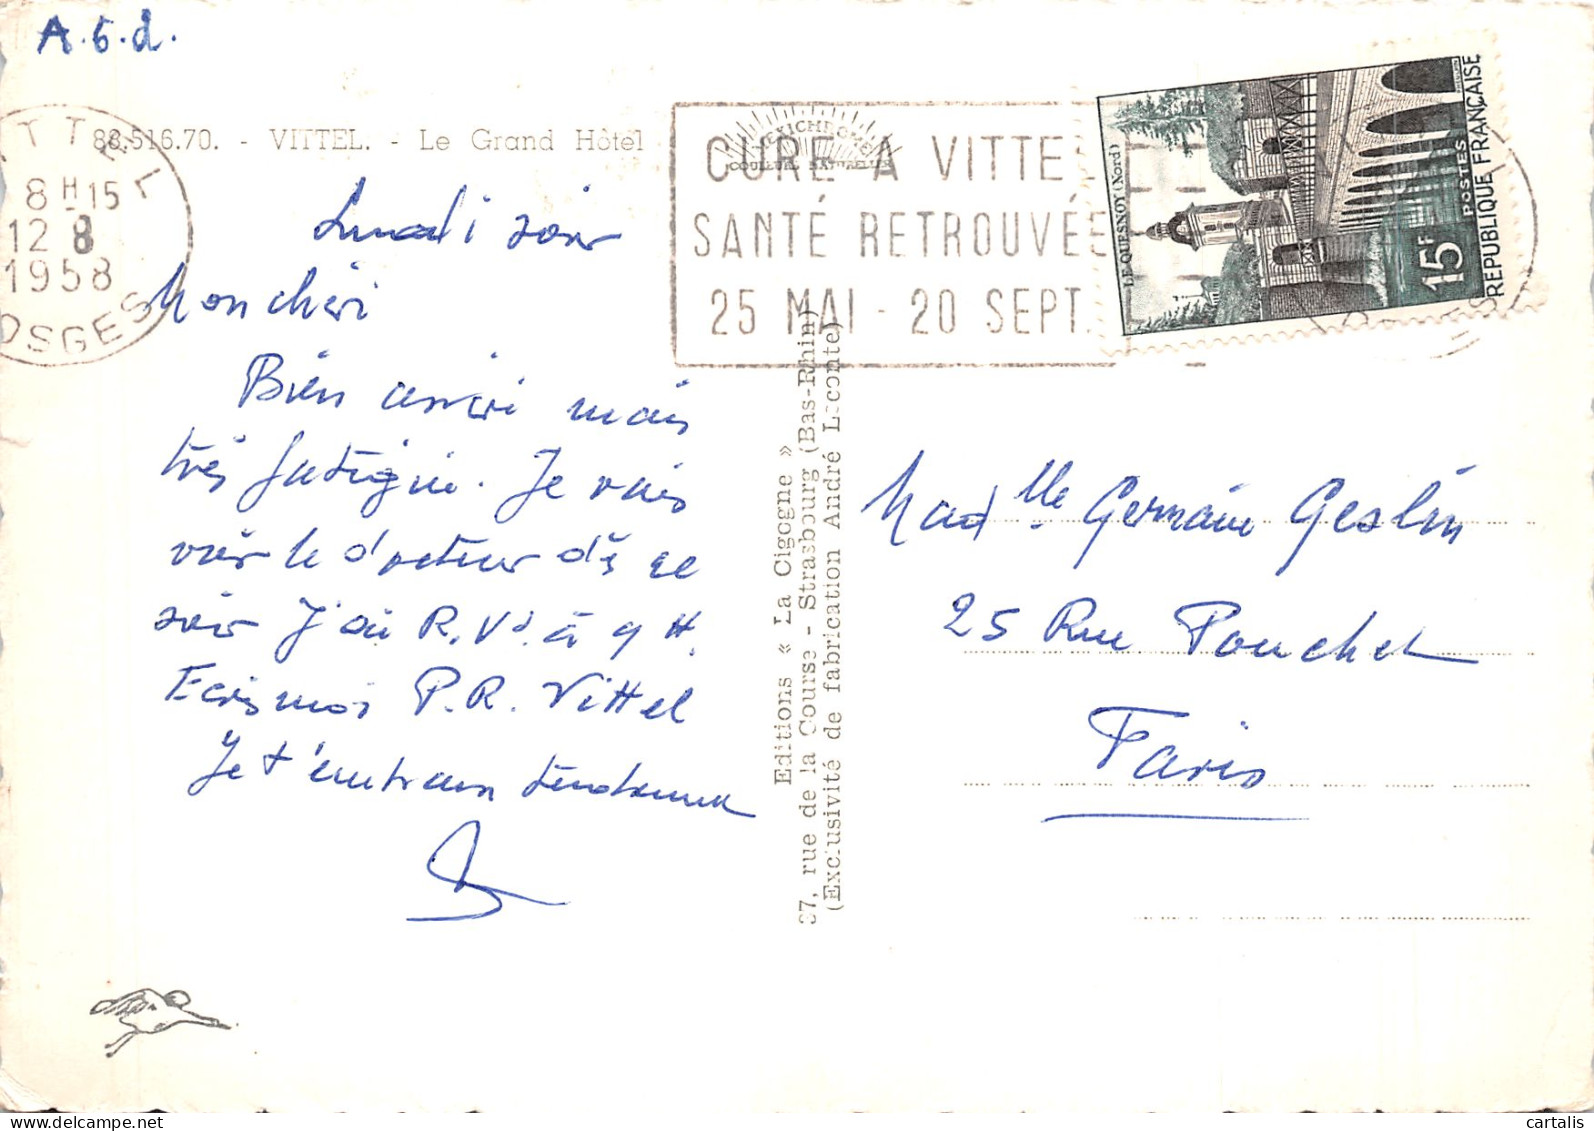 A.6.d.
88.516.70. - VITTEL. - Le Grand Hôtel
VITTEL
8H15
12 8
1958
VOSGES
MEXICHROME
COULEURS NATURELLES
CURE A VITTEL
SANTÉ RETROUVÉE
25 MAI - 20 SEPT.
LE QUESNOY (Nord)
15F
POSTES
REPUBLIQUE FRANÇAISE
Lundi soir
Mon chéri
Bien arrivé mais
très fatigué. Je vais
voir le docteur dès ce
soir J'ai R.Vs à 9 H.
Ecris moi P.R. Vittel
Je t'embrasse tendrement
Editions « La Cigogne »
37, rue de la Course - Strasbourg (Bas-Rhin)
(Exclusivité de fabrication André Leconte)
Madlle Germaine Geslin
25 Rue Pouchet
Paris
cartalis